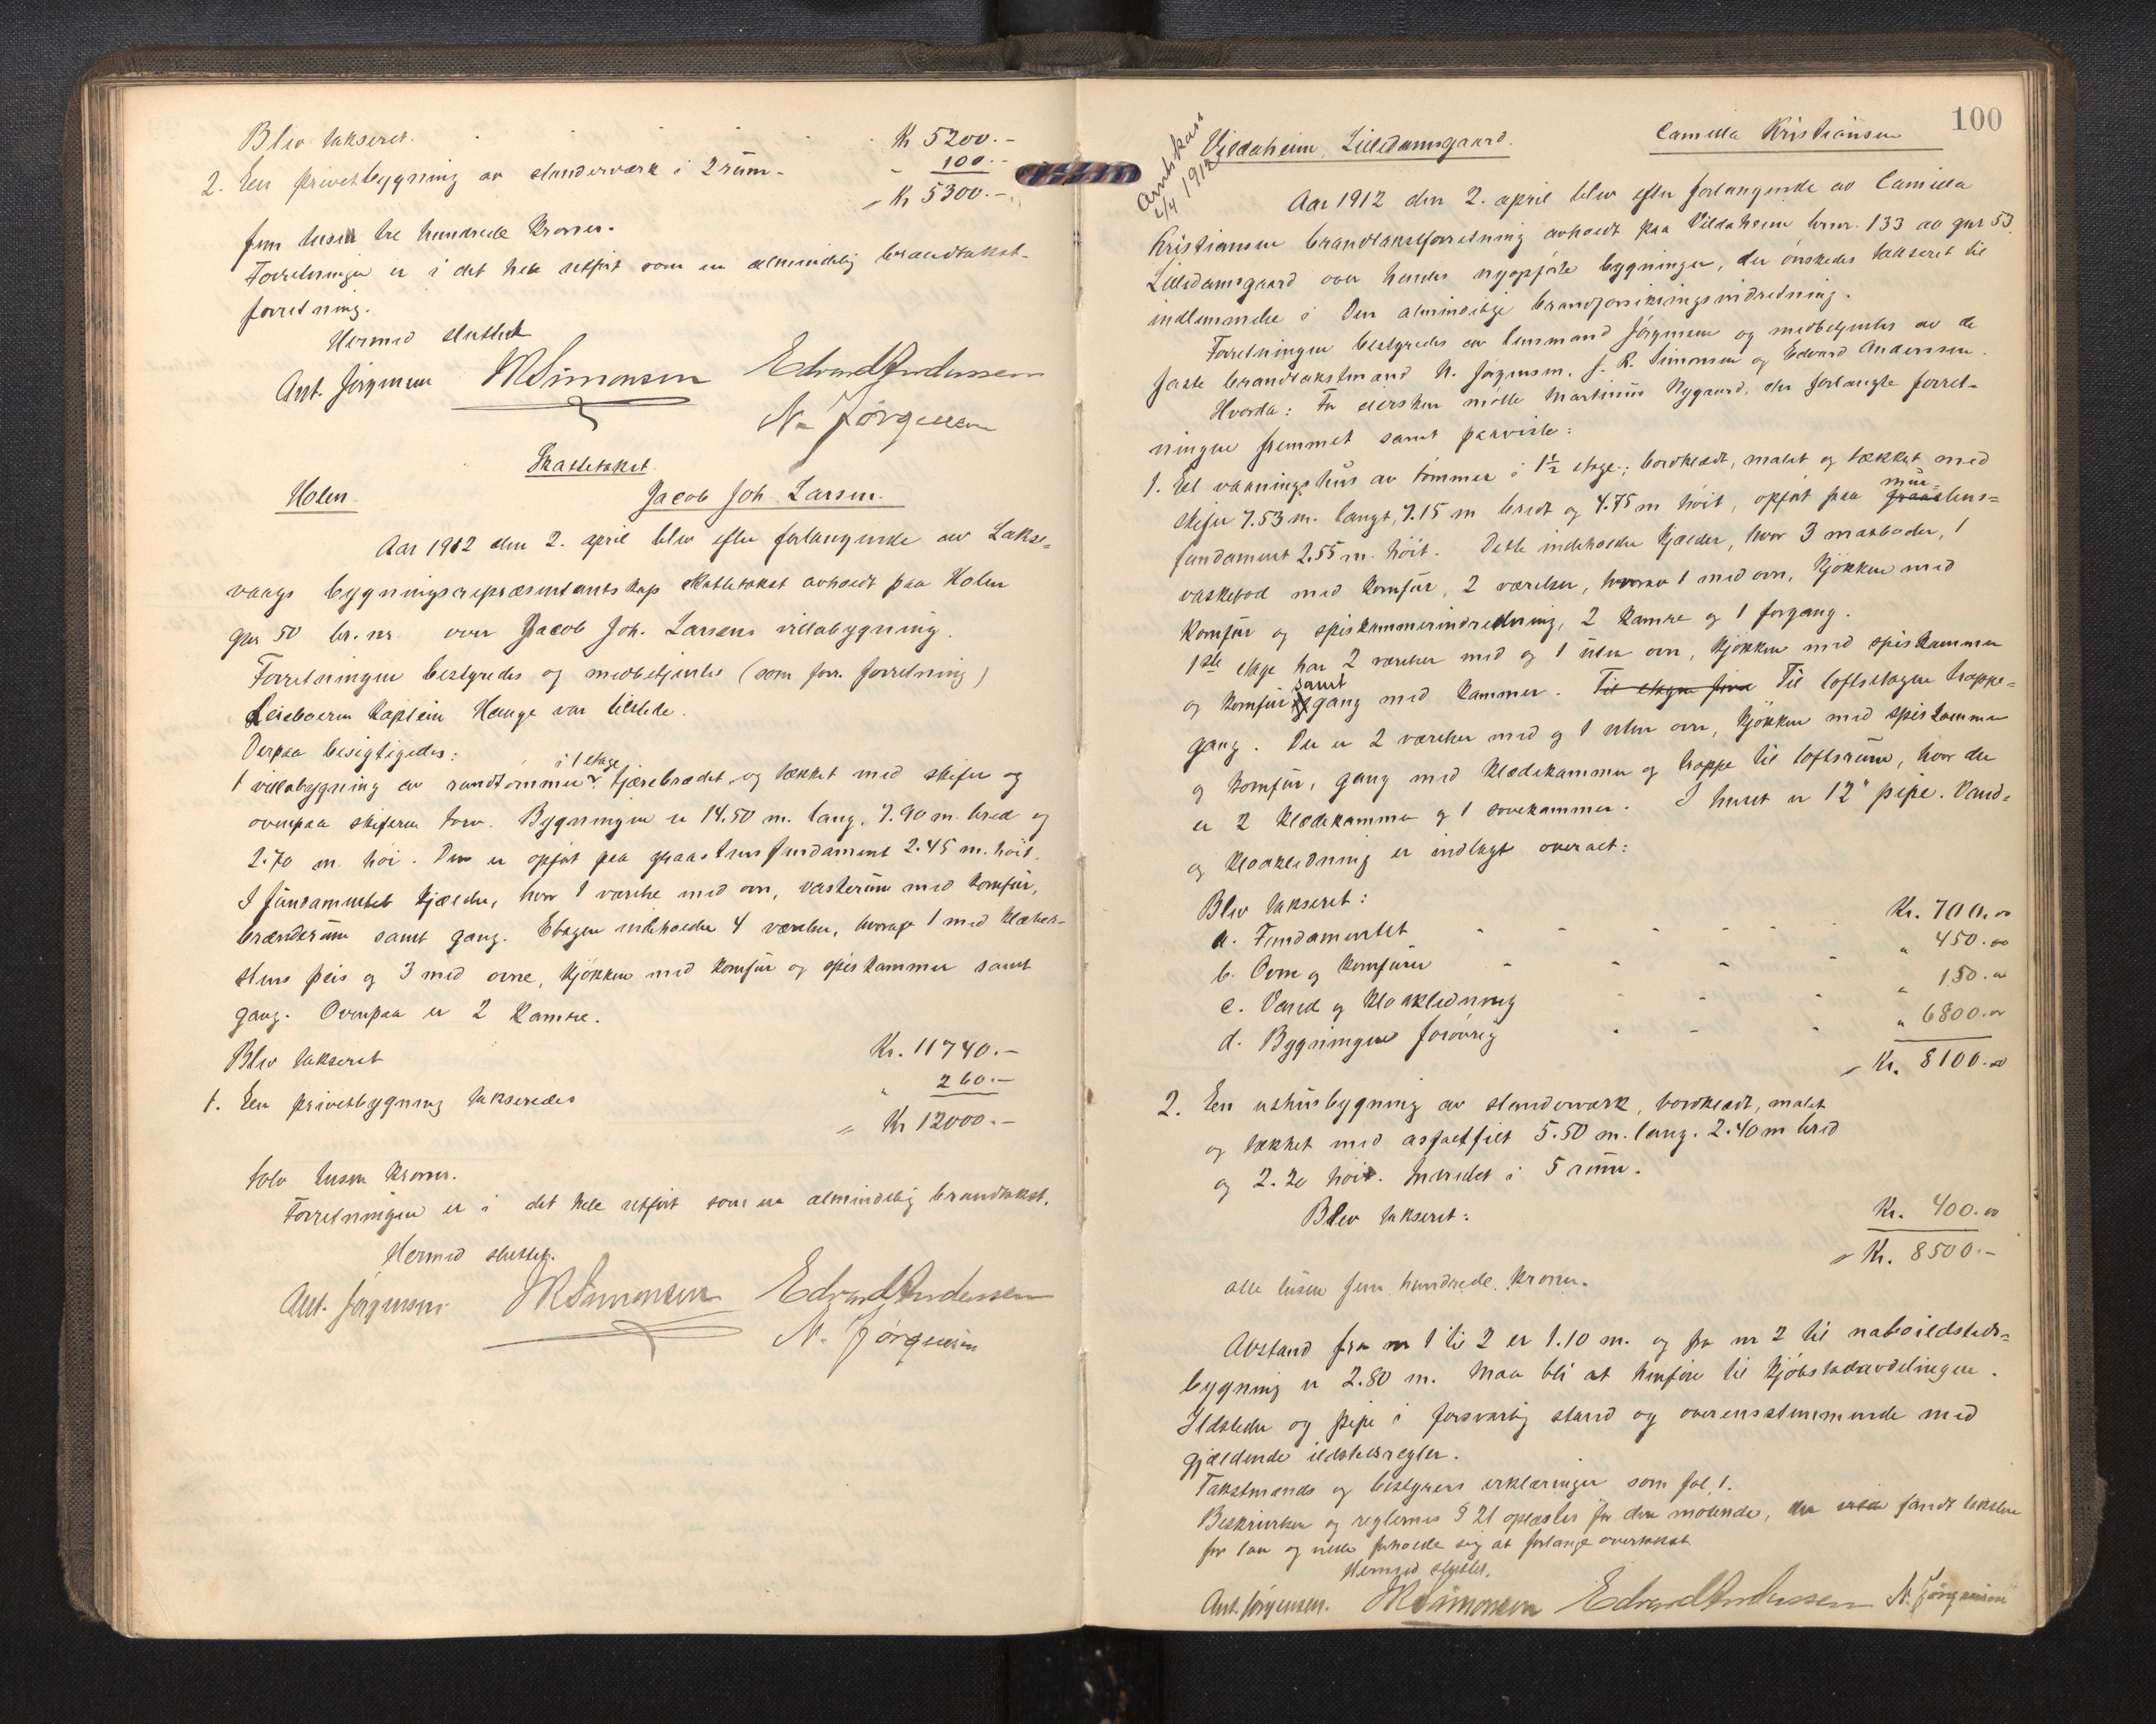 Blev takseret. Kr 5200.-
2. En privetbygning av stenderværk i 2 rum - - 100.-
Kr 5300.-
fem tusen tre hundrede kroner.
Forretningen er i det hele utført som en almindelig brandtakst-
forretning.
Hermed sluttet
Ant. Jørgensen JRSimonsen Edvard Andersen
N. Jørgensen
Skattetakst
Holen. Jacob Joh. Larsen.
Aar 1912 den 2. april blev efter forlangende av Lakse-
vaags bygningsrepræsentantskap skattetakst avholdt paa Holen
gnr 50 br.nr over Jacob Joh. Larsens villabygning.
Forretningen bestyredes og medbetjentes (som forr. forretning)
Leieboeren kaptein Hauge var tilstede.
Derpaa besigtigedes:
1 villabygning av rundtømmer i 1 etage tjærebrædet og tækket med skifer og
ovenpaa skiferen torv. Bygningen er 14.50 m. lang, 7.90 m. bred og
2.70 m. høi. Den er opført paa graastensfundament 2.45 m. høit.
I fundamentet kjælder, hvor 1 værelse med ovn, vaskerum med komfur,
brænderum samt gang. Etagen indeholder 4 værelser, hvorav 1 med klæber-
stens peis og 3 med ovne, kjøkken med komfur og spiskammer samt
gang. Ovenpaa er 2 kamre.
Blev takseret Kr. 11740.-
1. En privetbygning takseredes " 260.-
Kr 12000.-
tolv tusen kroner.
Forretningen er i det hele utført som en almindelig brandtakst.
Hermed sluttet.
Ant. Jørgensen JRSimonsen Edvard Andersen
N. Jørgensen
100
Avskast
2/4 1912
Vildaheim, Lilledamsgaard. Camilla Kristiansen
Aar 1912 den 2. april blev efter forlangende av Camilla
Kristiansen brandtakstforretning avholdt paa Vildaheim brnr. 133 av gnr 53
Lilledamsgaard over hendes nyopførte bygninger, der ønskedes takseret til
indlemmelse i Den almindelige brandforsikringsindretning.
Forretningen bestyredes av lensmand Jørgensen og medbetjentes av de
faste brandtakstmænd N. Jørgensen, J. R. Simonsen og Edvard Andersen.
Hvorda: For eiersken møtte Martinus Nygaard, der forlangte forret-
ningen fremmet samt paaviste:
1. Et vaaningshus av tømmer i 1½ etage; bordklædt, malet og tækket med
skifer 7.53 m. langt, 7.15 m bredt og 4.75 m høit, opført paa graa mur-stens-
fundament 2.55 m. høit. Dette indeholder kjælder, hvor 3 matboder, 1
vaskebod med komfur, 2 værelser, hvorav 1 med ovn, kjøkken med
komfur og spiskammerindredning, 2 kamre og 1 forgang.
1ste etage har 2 værelser med og 1 uten ovn, kjøkken med spiskammer
og komfur samt gang med kammer. Til etagen fire Til loftsetagen trappe-
gang. Der er 2 værelser med og 1 uten ovn, kjøkken med spiskammer
og komfur, gang med klædekammer og trappe til loftsrum, hvor der
er 2 klædekammer og 1 sovekammer. I huset er 12" pipe. Vand-
og kloakledning er indlagt overalt:
Blev takseret:
a. Fundamentet Kr. 700.00
b. Ovne og komfurer " 450.00
c. Vand og kloakledning " 150.00
d. Bygningen forøvrig " 6800.00
Kr. 8100.00
2. En uthusbygning av stenderværk, bordklædt, malet
og tækket med asfaltfilt 5.50 m. lang. 2.40 m bred
og 2.20 høi. Indredet i 5 rum.
Blev takseret: Kr. 400.00
Kr. 8500.-
otte tusen fem hundrede kroner.
Avstand fra nr 1 til 2 er 1.10 m. og fra nr 2 til naboildsteds-
bygning er 2.80 m. Maa bli at henføre til kjøbstadavdelingen.
Ildsteder og pipe i forsvarlig stand og overensstemmende med
gjældende ildstedsregler.
Takstmænds og bestyrers erklæringer som fol. 1.
Beskrivelsen og reglernes § 21 oplæstes for den møtende, der fandt taksten
for lav og vilde forholde sig at forlange overtakst
Hermed sluttet.
Ant. Jørgensen. JRSimonsen Edvard Andersen N. Jørgensen